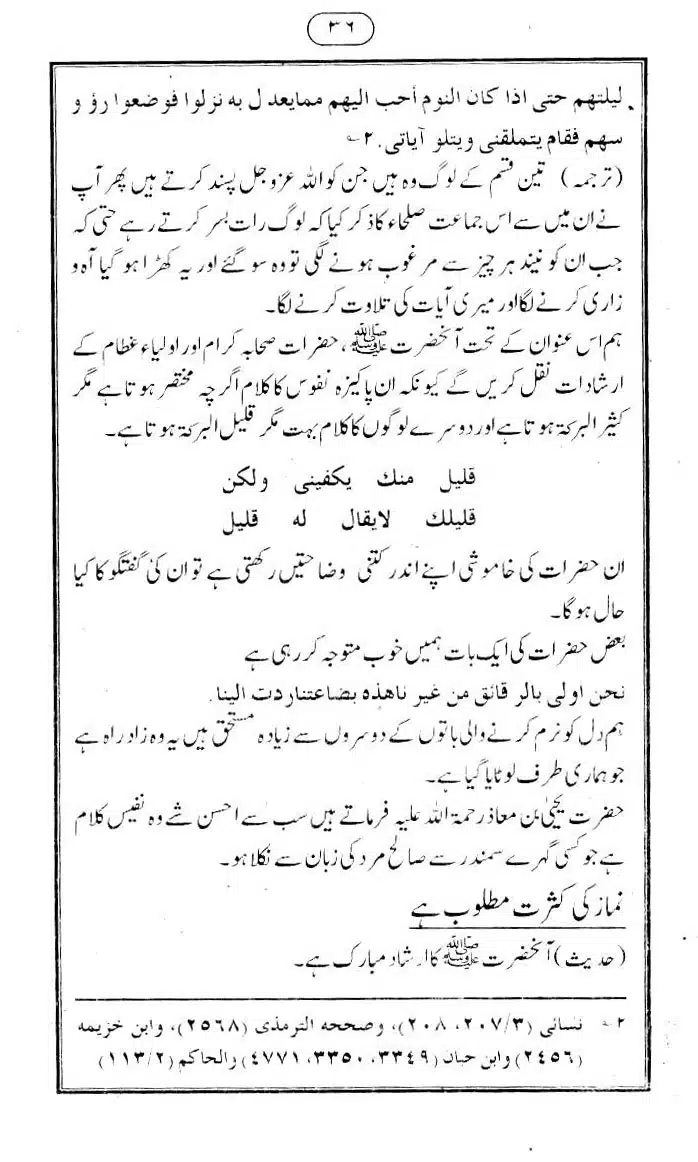 ٣٦
ليلتهم حتى اذا كان النوم أحب اليهم ممايعدل به نزلوا فوضعوا رؤ و
سهم فقام يتملقنى ويتلو آياتى. ٢؎
(ترجمہ) تین قسم کے لوگ وہ ہیں جن کو اللہ عزوجل پسند کرتے ہیں پھر آپ
نے ان میں سے اس جماعت صلحاء کا ذکر کیا کہ لوگ رات بسر کرتے رہے حتی کہ
جب ان کو نیند ہر چیز سے مرغوب ہونے لگی تو وہ سو گئے اور یہ کھڑا ہو گیا آہ و
زاری کرنے لگا اور میری آیات کی تلاوت کرنے لگا۔
ہم اس عنوان کے تحت آنحضرت ﷺ، حضرات صحابہ کرام اور اولیاء عظام کے
ارشادات نقل کریں گے کیونکہ ان پاکیزہ نفوس کا کلام اگرچہ مختصر ہوتا ہے مگر
کثیر البرکۃ ہوتا ہے اور دوسرے لوگوں کا کلام بہت مگر قلیل البرکۃ ہوتا ہے۔
قليل منك يكفينى ولكن
قليلك لايقال له قليل
ان حضرات کی خاموشی اپنے اندر کتنی وضاحتیں رکھتی ہے تو ان کی گفتگو کا کیا
حال ہوگا۔
بعض حضرات کی ایک بات ہمیں خوب متوجہ کر رہی ہے
نحن اولى بالر قائق من غير ناهذه بضاعتنار دت الينا.
ہم دل کو نرم کرنے والی باتوں کے دوسروں سے زیادہ مستحق ہیں یہ وہ زاد راہ ہے
جو ہماری طرف لوٹایا گیا ہے۔
حضرت یحییٰ بن معاذ رحمۃ اللہ علیہ فرماتے ہیں سب سے احسن شے وہ نفیس کلام
ہے جو کسی گہرے سمندر سے صالح مرد کی زبان سے نکلا ہو۔
نماز کی کثرت مطلوب ہے
(حدیث) آنحضرت ﷺ کا ارشاد مبارک ہے۔
٢؎ نسائى (٢٠٧/٣، ٢٠٨)، وصححه الترمذى (٢٥٦٨)، وابن خزيمه
(٢٤٥٦) وابن حبان (٣٣٤٩، ٣٣٥٠، ٤٧٧١) والحاكم (١١٣/٢)